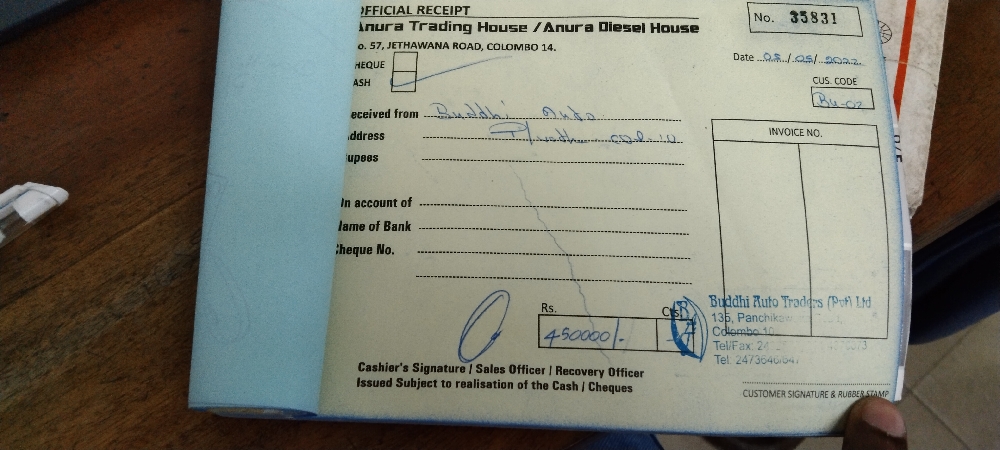 OFFICIAL RECEIPT
No. 35831
Anura Trading House / Anura Diesel House
o. 57, JETHAWANA ROAD, COLOMBO 14.
Date 05/05/2022
HEQUE
ASH
CUS. CODE
Bu-02
eceived from Buddhi Auto
ddress col-10
INVOICE NO.
upees
n account of
ame of Bank
heque No.
Rs. Cts.
450000/-
Buddhi Auto Traders (Pvt) Ltd
135,
Colombo 10.
Tel/Fax:
Tel:
Cashier's Signature / Sales Officer / Recovery Officer
Issued Subject to realisation of the Cash / Cheques
CUSTOMER SIGNATURE & RUBBER STAMP